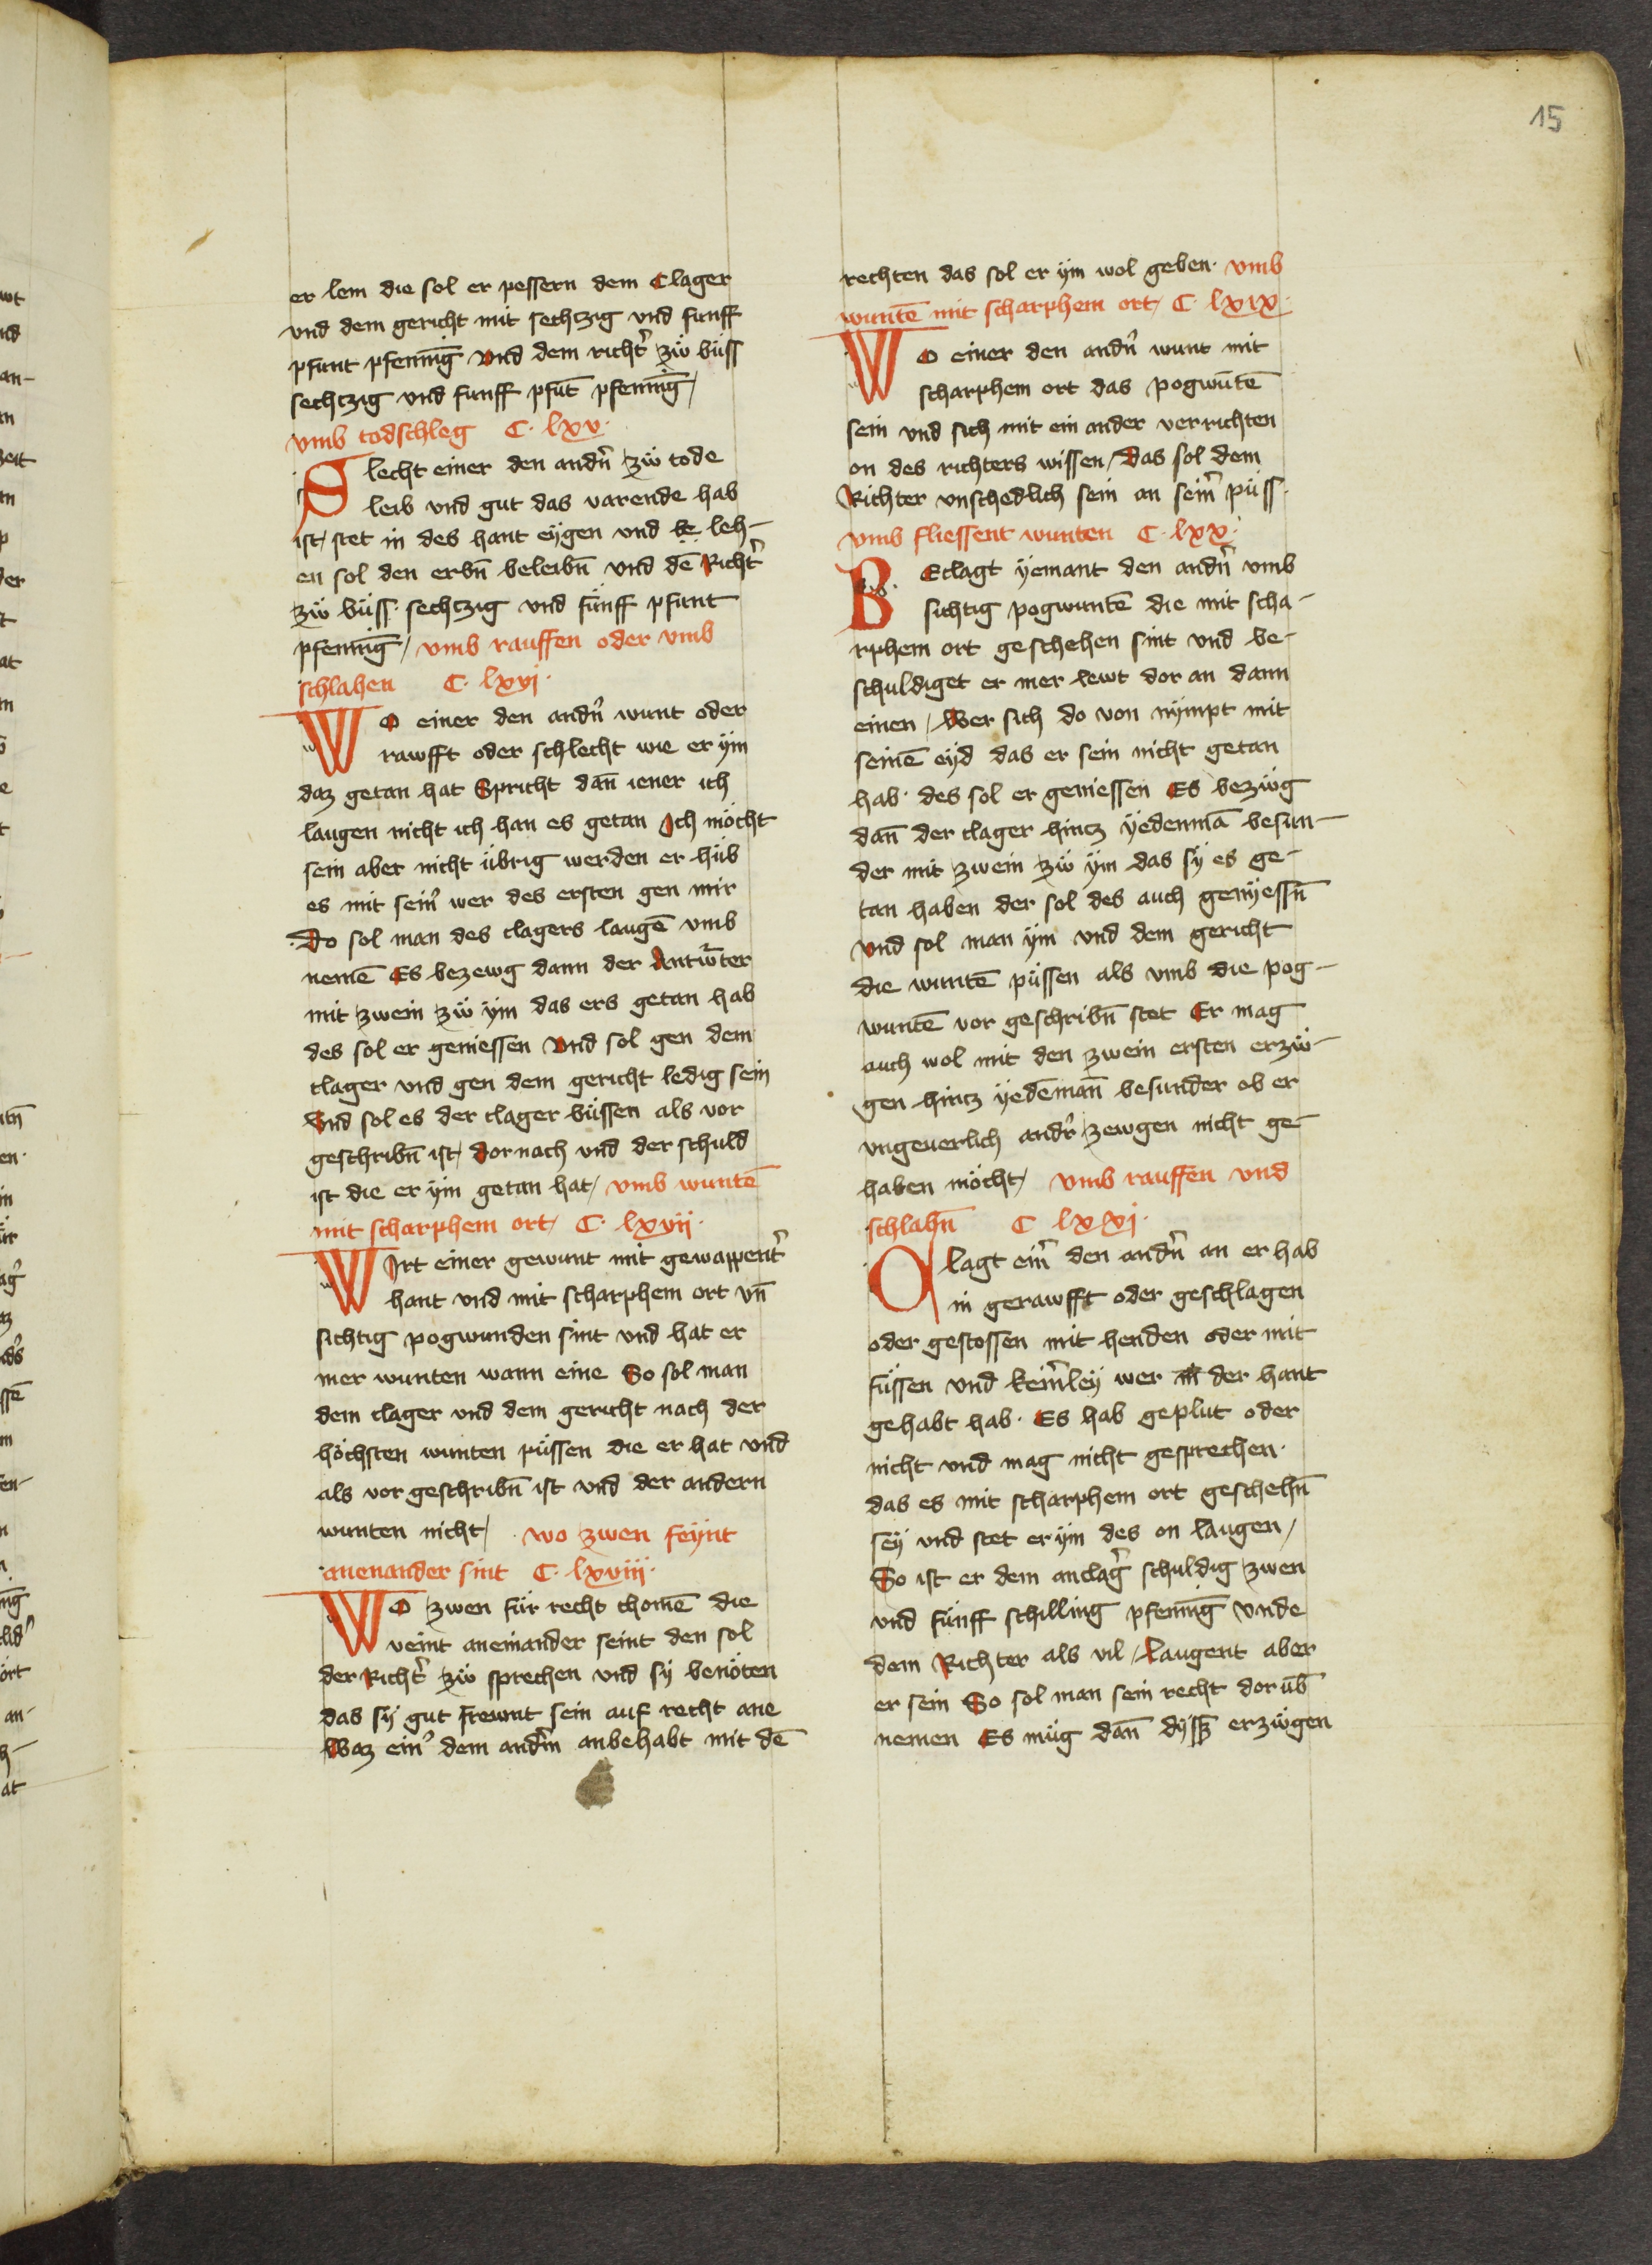 15
er lem die sol er pessern dem Clager
vnd dem gericht mit sechtzig vnd funff
pfunt pfenni̅g vnd dem richt̉ zü büss
sechtzig vnd funff pfu̅t pfenni̅g /
vmb todschleg C. lxv.
Slecht einer den andn̉ zü tode
leib vnd gut das varende hab
ist / stet in des hant eÿgen vnd le leh-
en sol den erbn̅ beleibn̅ vnd de̅ Richt̉
zü büss. sechtzig vnd fünff pfunt
pfenni̅g / vmb rauffen oder vmb
schlahen C. lxvj.
WO einer den andn̉ wunt oder
rawfft oder schlecht wie er ÿm
daz getan hat Spricht dan̅ iener ich
laugen nicht ich han es getan Ich möcht
sein aber nicht übrig werden er hüb
es mit sein̉ wer des ersten gen mir
Do sol man des clagers lauge̅ vmb
neme̅ Es bezewg dann der Antw̉ter
mit zwein zü ÿm das ers getan hab
des sol er geniessen vnd sol gen dem
clager vnd gen dem gericht ledig sein
Vnd sol es der clager büssen als vor
geschribn̅ ist / dornach vnd der schuld
ist die er ÿm getan hat / vmb wunte̅
mit scharphem ort / C. lxvij.
WIrt einer gewunt mit gewappent̉
hant vnd mit scharphem ort vn̅
sichtig pogwunden sint vnd hat er
mer wunten wann eine So sol man
dem clager vnd dem gericht nach der
höchsten wunten püssen die er hat vnd
als vor geschribn̅ ist vnd der andern
wunten nicht / wo zwen feÿnt
aneinander sint C. lxviij.
WO zwen für recht chome̅ die
veint aneinander seint den sol
der Richt̉ zü sprechen vnd sÿ benöten
das sÿ gut frewnt sein auf recht ane
Waz ein̉ dem andm̉ anbehabt mit de̅
rechten das sol er ÿm wol geben. vmb
wunte̅ mit scharphem ort / C. lxix.
WO einer den andn̉ wunt mit
scharphem ort das pogwu̅te̅
sein vnd sich mit ein ander verrichten
on des richters wissen / Das sol dem
Richter vnschedlich sein an seim̉ püss.
vmb fliessent wunten C. lxx.
BEclagt ÿemant den andn̉ vmb
sichtig pogwunte̅ die mit scha-
rphem ort geschehen sint vnd be-
schuldiget er mer lewt dor an dann
einen / Wer sich do von nÿmpt mit
seine̅ eÿd das er sein nicht getan
hab. des sol er geniessen Es bezüg
dan̅ der clager hincz ÿedenma̅ besun-
der mit zwein zü ÿm das sÿ es ge-
tan haben der sol des auch genÿessn̅
vnd sol man ÿm vnd dem gericht
die wunte̅ püssen als vmb die pog-
wunte̅ vor geschribn̅ stet Er mag
auch wol mit den zwein ersten erzü-
gen hincz ÿede̅man̅ besunder ob er
vngeuerlich andr̉ zewgen nicht ge-
haben möcht / vmb rauffen vnd
schlahn̅ C lxxj.
Clagt ein̉ den andn̉ an er hab
in gerawfft oder geschlagen
oder gestossen mit henden oder mit
füssen vnd kein̉leÿ wer in der hant
gehabt hab. Es hab geplut oder
nicht vnd mag nicht gesprechen.
das es mit scharphem ort geschehn̅
seÿ vnd stet er ÿm des on laugen /
So ist er dem anclag̉ schuldig zwen
vnd fünff schilling pfenni̅g vnde
dem Richter als vil / Laugent aber
er sein So sol man sein recht dorüb̅
nemen Es müg dan̅ dÿß erzügen